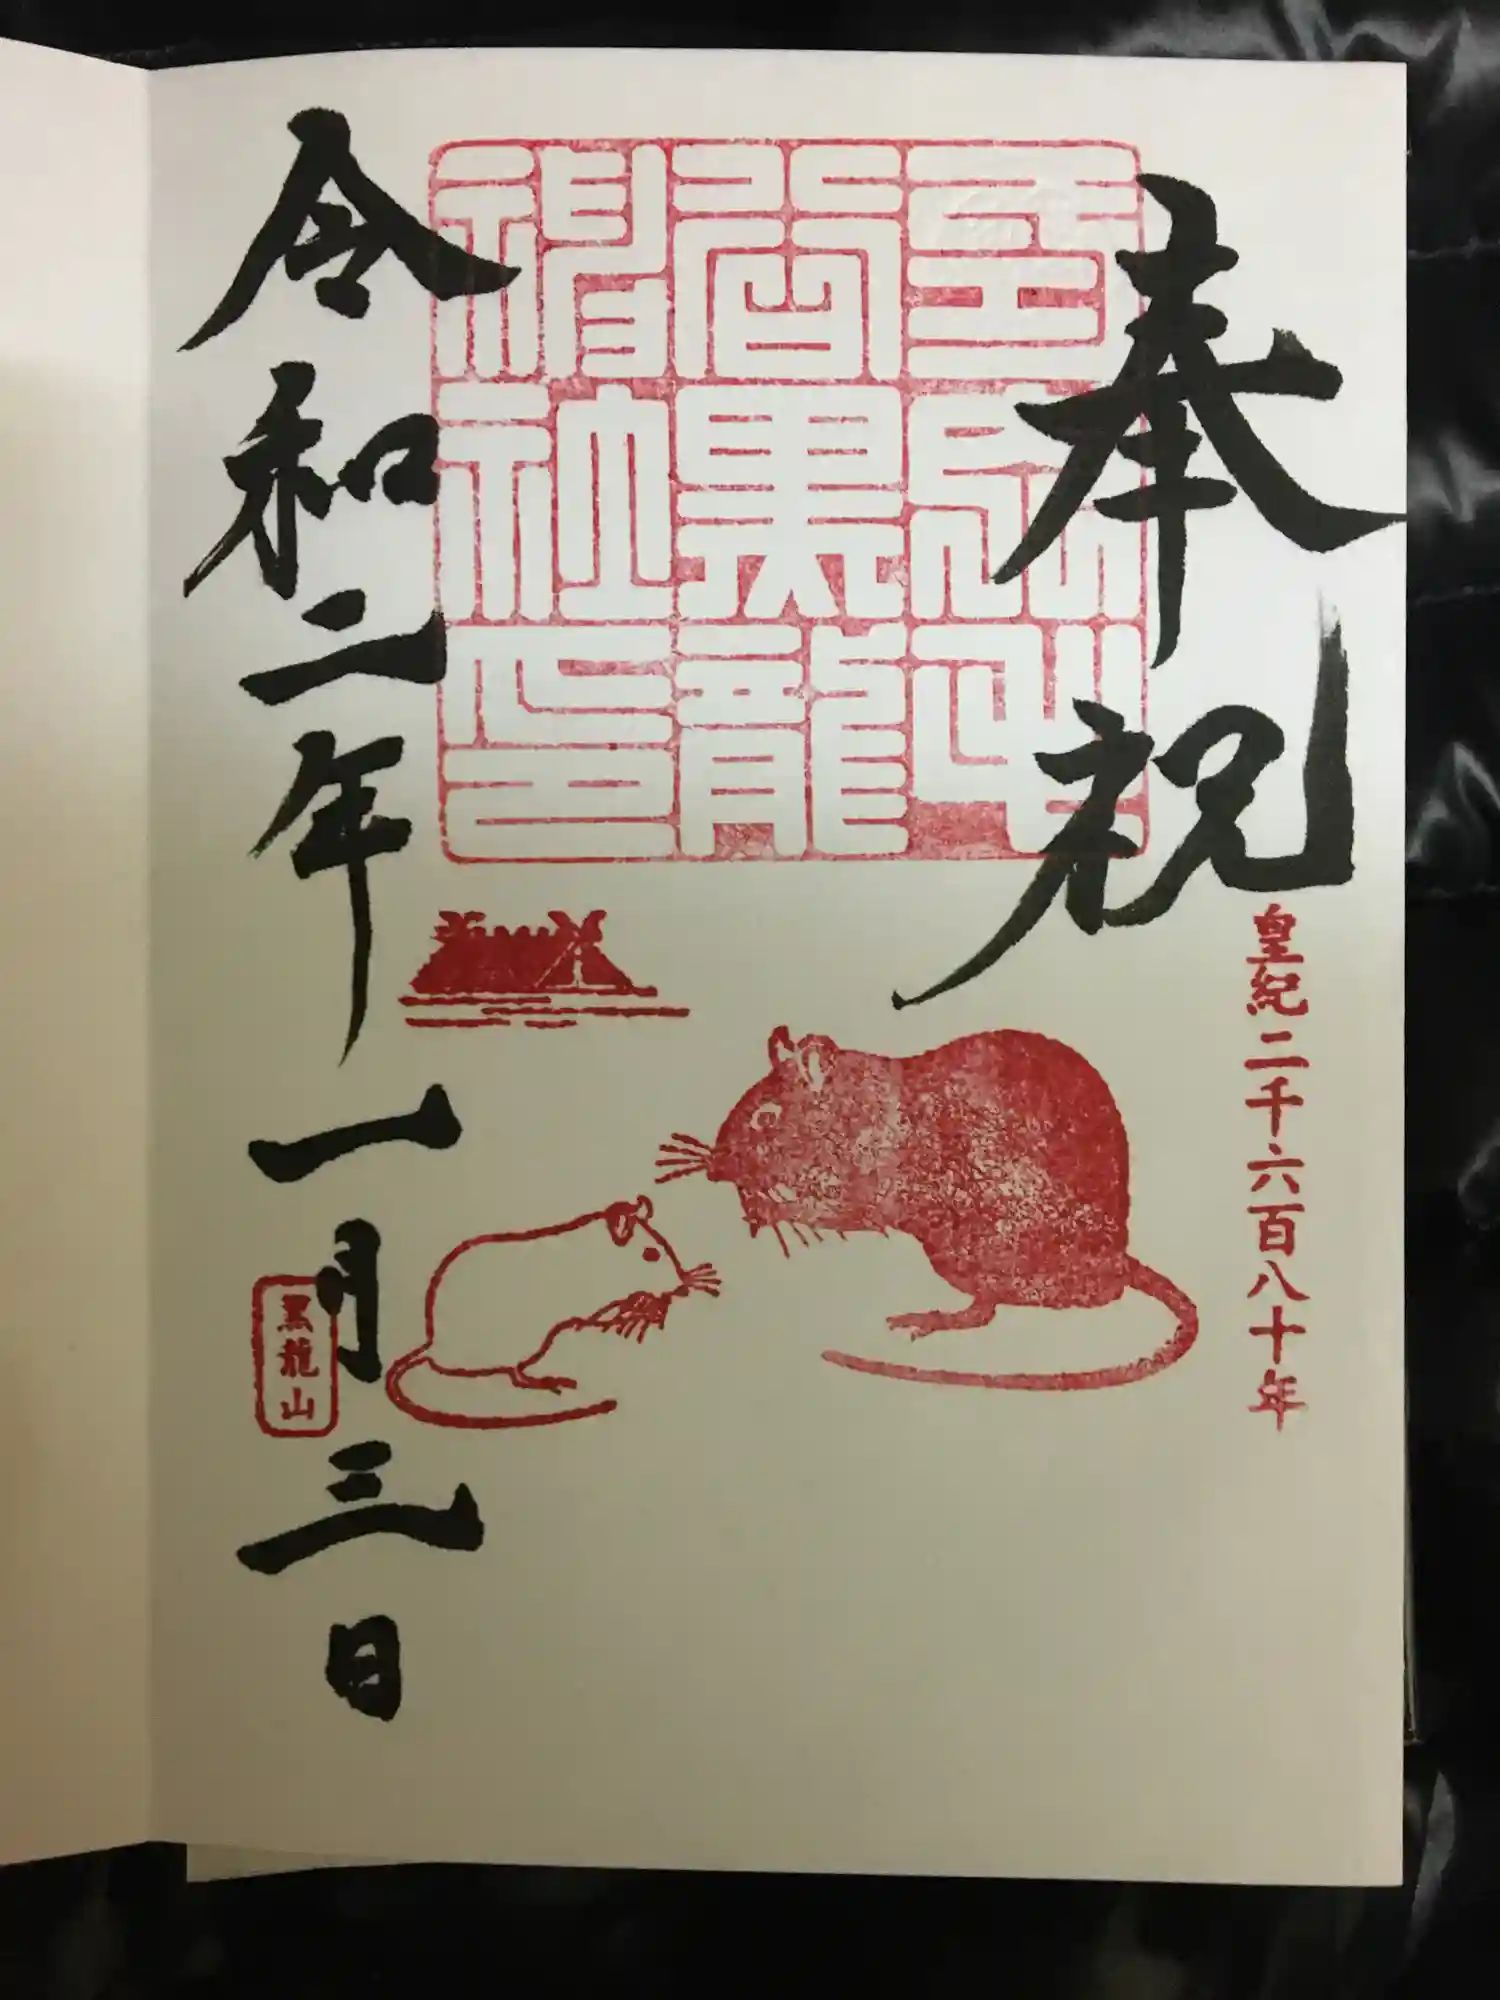 奉祝
皇紀二千六百八十年
黒龍
神社印
令和二年一月三日
黒龍山